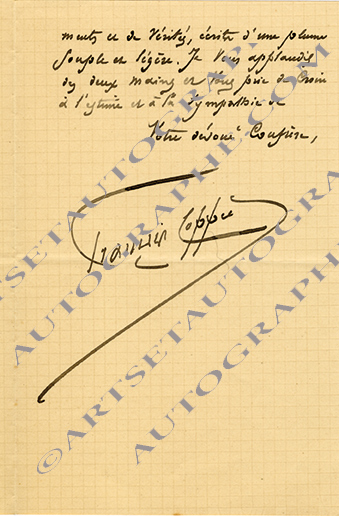 ments et de vérités, écrits d'une plume
souple et légère. Je vous applaudis
des deux mains et vous prie de croire
à l'estime et à la sympathie de
Votre dévoué Confrère,
François Coppée
©ARTSETAUTOGRAPHE.COM
ARTSETAUTOGRAPHE.COM
ARTSETAUTOGRAPHE